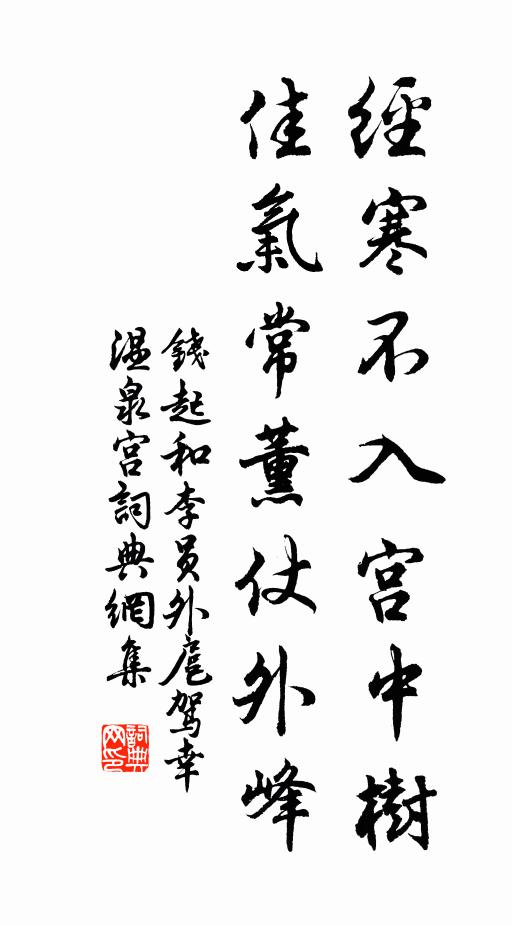 經寒不入宫中樹
佳氣常薰仗外峰
錢起和李員外扈駕幸
温泉宫詞典網集
詞典
网印